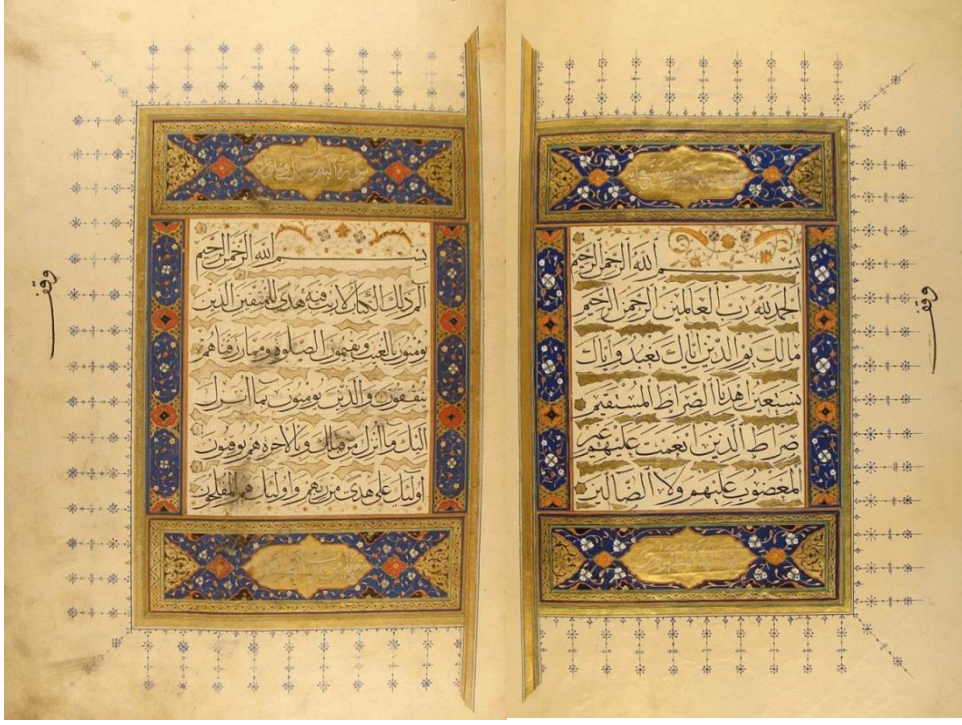 وقف
بسم الله الرحمن الرحيم
الحمد لله رب العالمين الرحمن الرحيم
مالك يوم الدين اياك نعبد واياك
نستعين اهدنا الصراط المستقيم
صراط الذين انعمت عليهم غير
المغضوب عليهم ولا الضالين
سورة البقرة
بسم الله الرحمن الرحيم
الم ذلك الكتاب لا ريب فيه هدى للمتقين الذين
يؤمنون بالغيب ويقيمون الصلوة ومما رزقناهم
ينفقون والذين يؤمنون بما انزل
اليك وما انزل من قبلك وبالاخرة هم يوقنون
اولئك على هدى من ربهم واولئك هم المفلحون
وقف